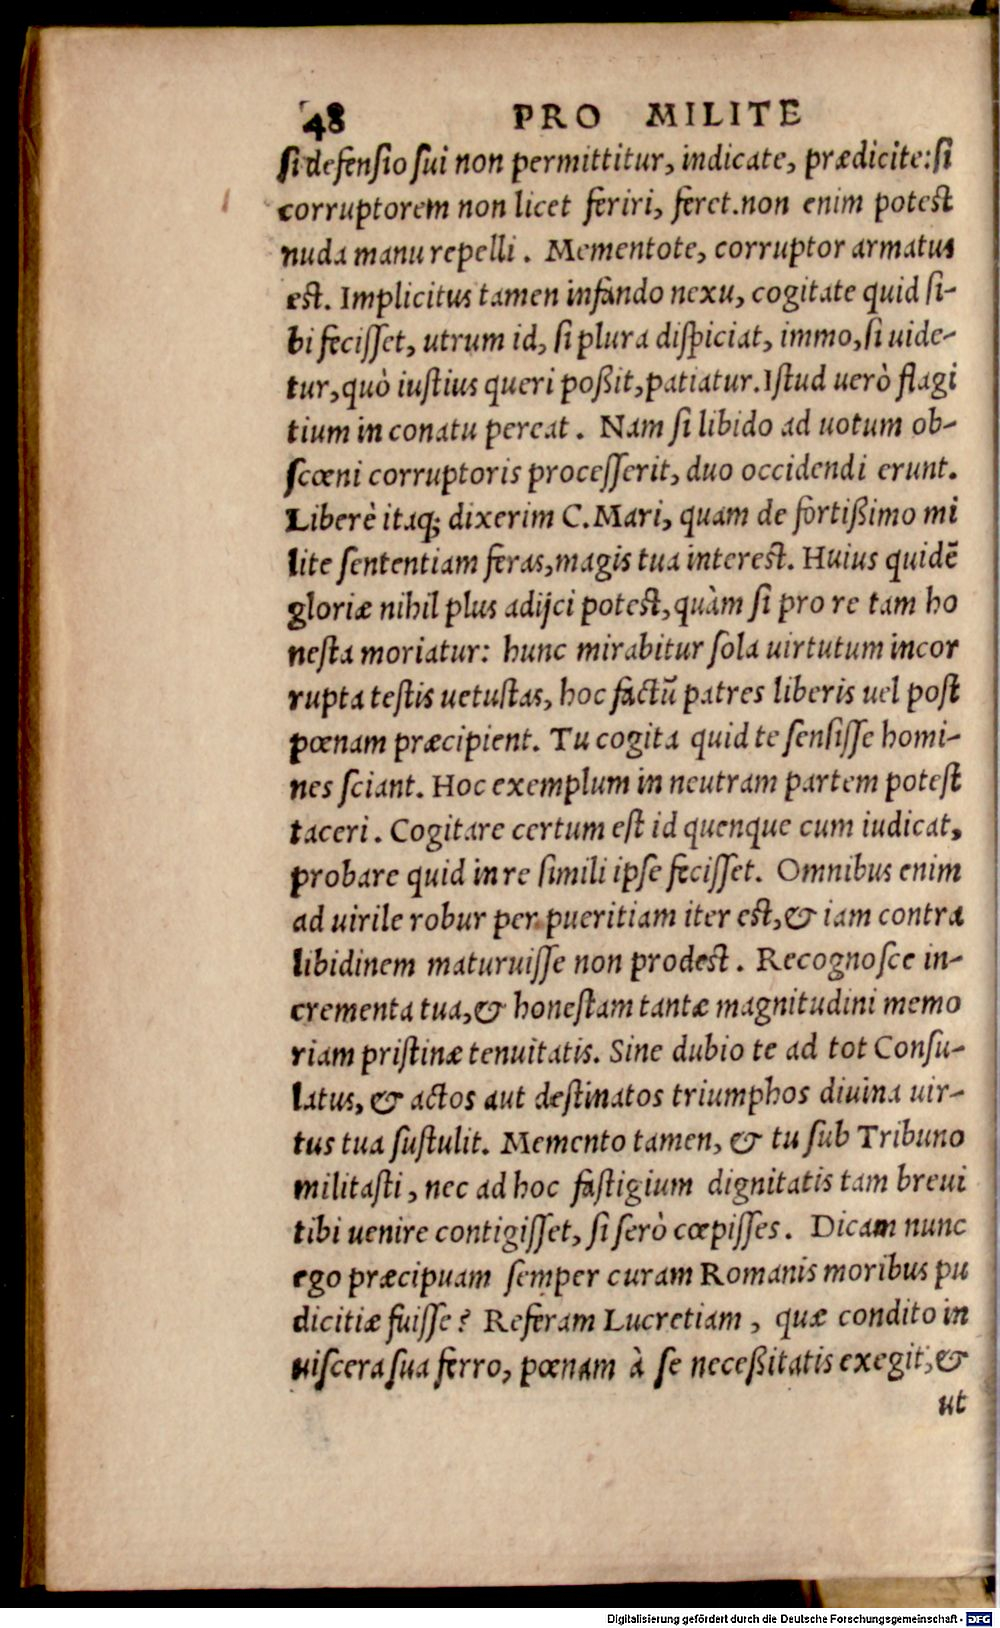 48 PRO MILITE
si defensio sui non permittitur, indicate, prædicite: si
corruptorem non licet feriri, feret. non enim potest
nuda manu repelli. Mementote, corruptor armatus
est. Implicitus tamen infando nexu, cogitate quid si-
bi fecisset, utrum id, si plura dispiciat, immo, si uide-
tur, quò iustius queri poßit, patiatur. Istud uerò flagi
tium in conatu pereat. Nam si libido ad uotum ob-
scœni corruptoris processerit, duo occidendi erunt.
Liberè itaq; dixerim C. Mari, quam de fortißimo mi
lite sententiam feras, magis tua interest. Huius quidẽ
gloriæ nihil plus adijci potest, quàm si pro re tam ho
nesta moriatur: hunc mirabitur sola uirtutum incor
rupta testis uetustas, hoc factũ patres liberis uel post
pœnam præcipient. Tu cogita quid te sensisse homi-
nes sciant. Hoc exemplum in neutram partem potest
taceri. Cogitare certum est id quenque cum iudicat,
probare quid in re simili ipse fecisset. Omnibus enim
ad uirile robur per pueritiam iter est, & iam contra
libidinem maturuisse non prodest. Recognosce in-
crementa tua, & honestam tantæ magnitudini memo
riam pristinæ tenuitatis. Sine dubio te ad tot Consu-
latus, & actos aut destinatos triumphos diuina uir-
tus tua sustulit. Memento tamen, & tu sub Tribuno
militasti, nec ad hoc fastigium dignitatis tam breui
tibi uenire contigisset, si serò cœpisses. Dicam nunc
ego præcipuam semper curam Romanis moribus pu
dicitiæ fuisse? Referam Lucretiam, quæ condito in
uiscera sua ferro, pœnam à se neceßitatis exegit, &
ut
Digitalisierung gefördert durch die Deutsche Forschungsgemeinschaft - DFG